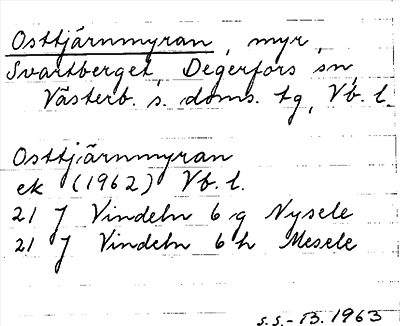 Osttjärnmyran, myr,
Svartberget, Degerfors sn,
Västerb. s. doms. tg, Vb. l.
Osttjärnmyran
ek (1962) Vb. l.
21 J Vindeln 6 g Nysele
21 J Vindeln 6 h Mesele
S.S.-B. 1963